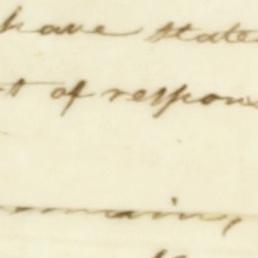 have state
t of respon
emain,